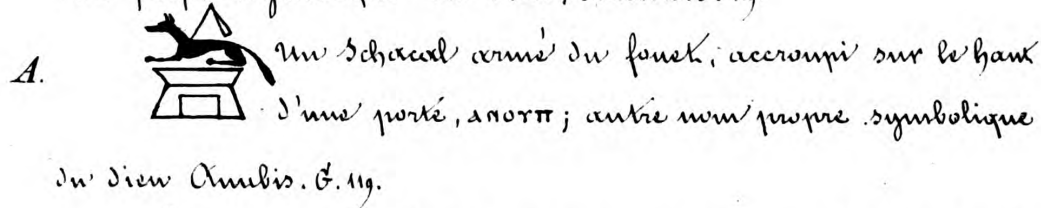 A. Un Schacal armé du fouet, accroupi sur le haut
d'une porte, ⲁⲛⲟⲩⲡ; autre nom propre symbolique
du dieu Anubis. G. 119.